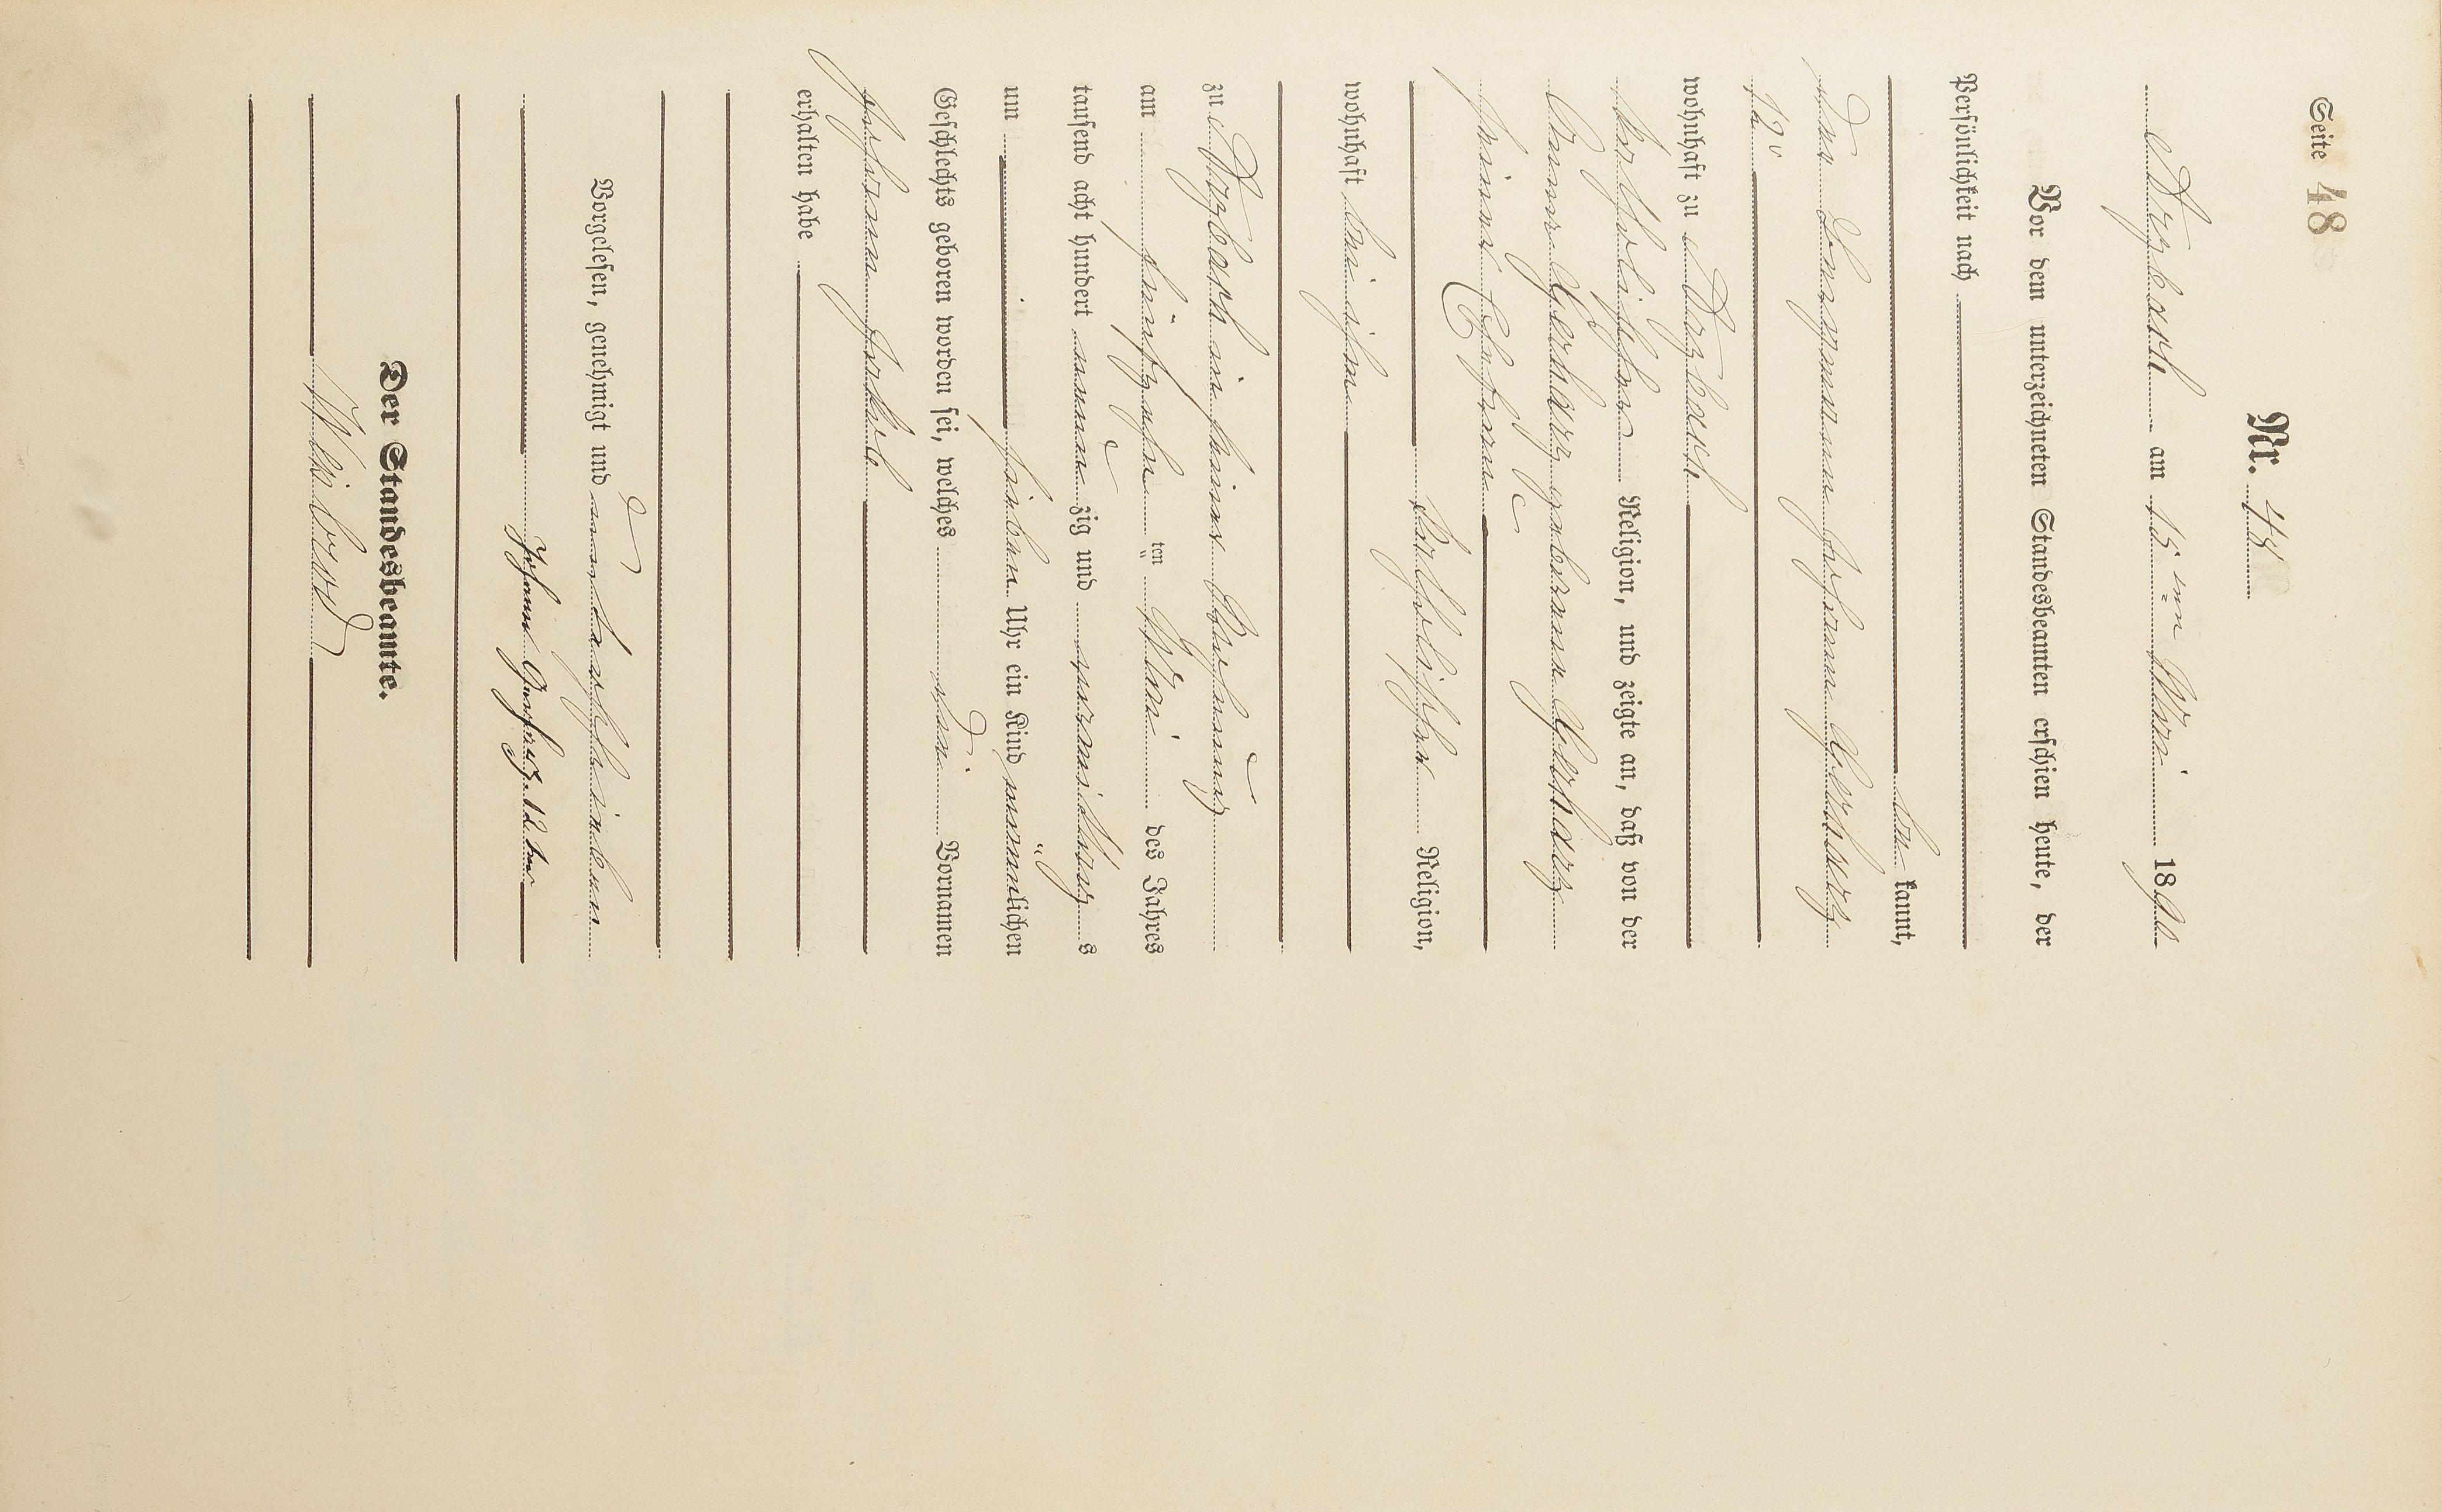 Seite 48
Nr. 48
Arzbach am 15 ten Mai 1890
Vor dem unterzeichneten Standesbeamten erschien heute, der
Persönlichkeit nach
be kannt,
der Bergmann Johann Gerharz
12r
wohnhaft zu Arzbach
katholischer Religion, und zeigte an, daß von der
Anna Gerharz geborene Gerharz
seiner Ehefrau
katholischer Religion,
wohnhaft bei ihm
zu Arzbach in seiner Wohnung
am fünfzehn ten Mai des Jahres
tausend acht hundert neun zig und vormittag s
um sieben Uhr ein Kind männlichen
Geschlechts geboren worden sei, welches den Vornamen
Johann Jakob
erhalten habe
Vorgelesen, genehmigt und unterschrieben
Johann Gerharz 12 ter
Der Standesbeamte.